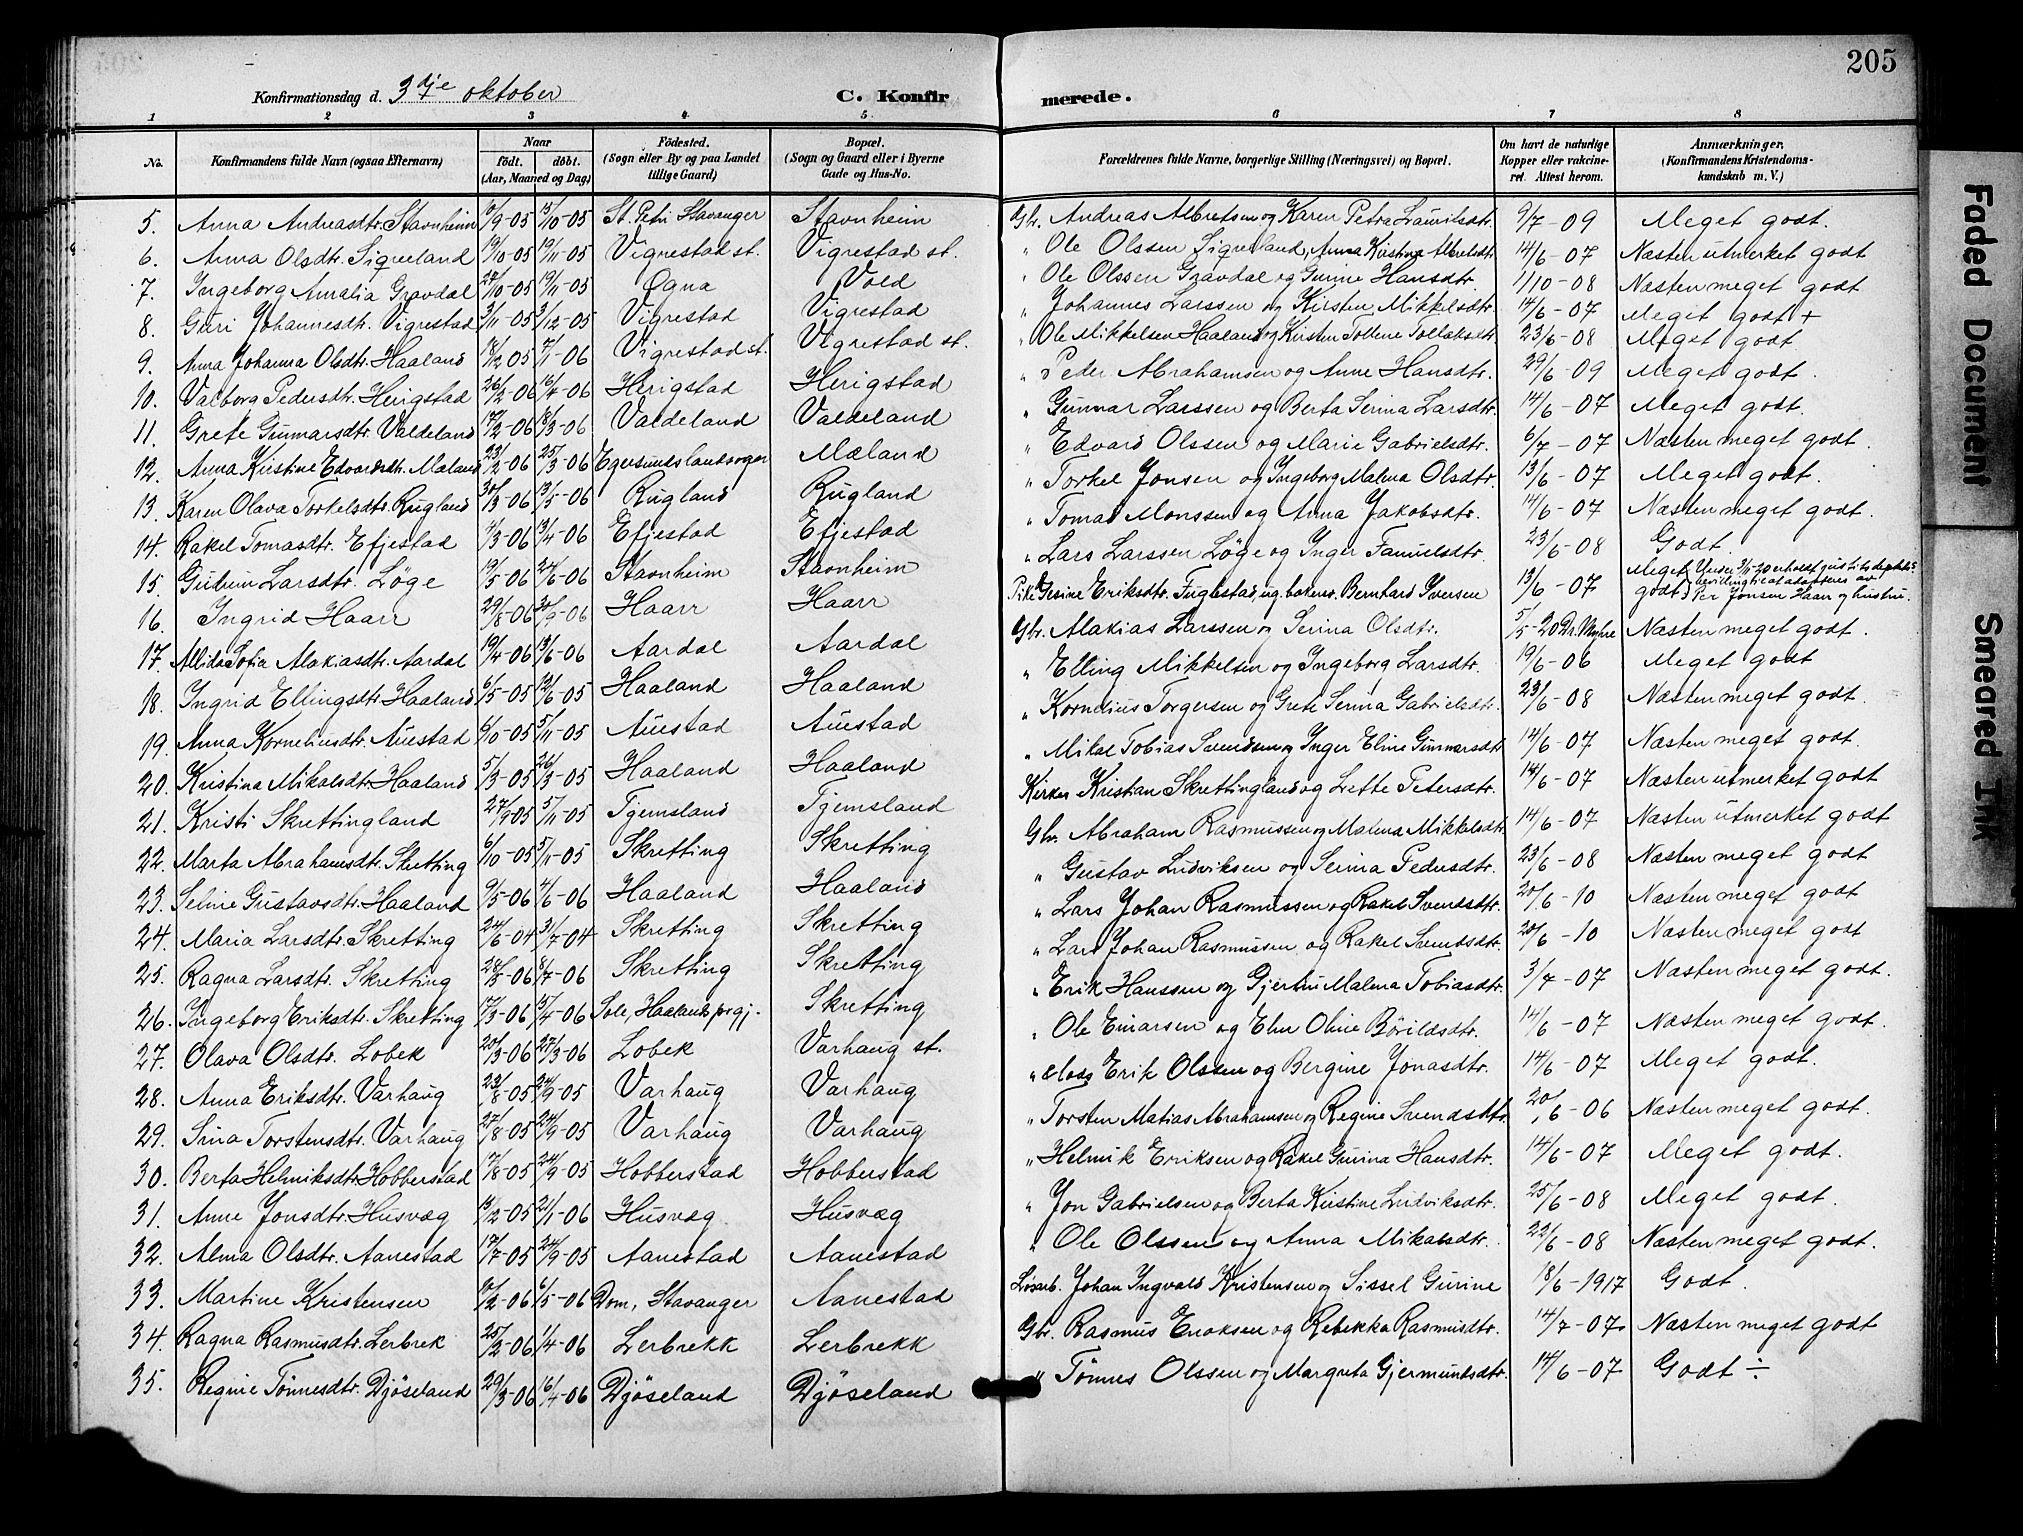 205
Konfirmationsdag d. 3dje oktober
C. Konfir merede.
1 2 3 4 5 6 7 8
No. Konfirmandens fulde Navn (ogsaa Efternavn) Naar født. døbt. (Aar, Maaned og Dag) Fødested. (Sogn eller By og paa Landet tillige Gaard) Bopæl. (Sogn og Gaard eller i Byerne Gade og Hus-No. Forældrenes fulde Navne, borgerlige Stilling (Næringsvei) og Bopæl. Om havt de naturlige Kopper eller vakcineret. Attest herom. Anmærkninger. (Konfirmandens Kristendomskundskab m. V.)
5. Anna Andreasdtr. Stavnheim /9-05 15/10-05 St. Petri Stavanger Stavnheim Gbr. Andreas Albretsen og Karen Petra Lauritsdtr. 9/7-09 Meget godt.
6. Anna Olsdtr. Sigveland 19/10-05 19/11-05 Vigrestad st. Vigrestad st. " Ole Olssen Sigveland, Anna Kristine Albretsdtr 14/6-07 Næsten utmerket godt
7. Ingeborg Amalia Gravdal /10-05 19/11-05 Ogna Vold " Ole Olssen Gravdal og Gunne Hansdtr. 1/10-08 Næsten meget godt.
8. Guri Johannesdtr. Vigrestad 3/11-05 3/12-05 Vigrestad Vigrestad " Johannes Larssen og Kirsten Mikkelsdtr. 14/6-07 Meget godt +
9. Anna Johanna Olsdtr. Haaland /12 05 7/1-06 Vigrestad st. Vigrestad st. " Ole Mikkelsen Haaland og Kirsten Tollaksdtr 23/6-08 Meget godt
10. Valborg Pedersdtr. Herigstad 26/2-06 16/4-06 Herigstad Herigstad " Peder Abrahamsen og Anne Hansdtr. 29/6-09 Meget godt.
11. Grete Gunnarsdtr. Valdeland /2-06 18/3-06 Valdeland Valdeland " Gunnar Larssen og Berta Serina Larsdtr. 14/6-07 Meget godt.
12. Anna Kristine Edvardsdtr. Mæland 23/2-06 25/3-06 Egersunds landsogn Mæland " Edvard Olssen og Marie Gabrielsdtr. 6/7-07 Næsten meget godt.
13. Karen Olava Torkelsdtr. Rugland 30/3-06 13/5-06 Rugland Rugland " Torkel Jonsen og Ingeborg Malena Olsdtr. 13/6-07 Meget godt.
14. Rakel Tomasdtr. Efjestad 4/3-06 13/4-06 Efjestad Efjestad " Tomas Monssen og Anna Jakobsdtr. 14/6-07 Næsten meget godt.
15. Gudrun Larsdtr. Löge 19/5-06 24/6-06 Stavnheim Stavnheim " Lars Larssen Löge og Inger Samuelsdtr. 23/6-08 Godt.
16. Ingrid Haarr 29/8-06 /9-06 Haarr Haarr Pike Gesine Eriksdtr. Fuglestad, ug. Bernhard Iversen 13/6-07 Meget godt. Per Jonsen Haarr og hustru.
17. Allida Sofia Alakiasdtr. Aardal 19/4-06 13/6-06 Aardal Aardal Gbr. Alakias Larssen og Serina Olsdtr. 5/5-20 Dr. Myhre Næsten meget godt.
18. Ingrid Ellingsdtr. Haaland 6/5-05 12/6-05 Haaland Haaland " Elling Mikkelsen og Ingeborg Larsdtr. 19/6-06 Meget godt
19. Anna Korneliusdtr. Auestad 6/10-05 5/11-05 Auestad Auestad " Kornelius Torgersen og Grete Serina Gabrielsdtr. 23/6-08 Næsten meget godt.
20. Kristina Mikalsdtr. Haaland 5/3-05 26/3-05 Haaland Haaland " Mikal Tobias Svendsen og Inger Eline Gunnarsdtr 14/6-07 Næsten meget godt.
21. Kristi Skrettingland 27/9-05 5/11-05 Tjemsland Tjemsland Kirkes. Kristian Skrettingland og Lette Petersdtr. 14/6-07 Næsten utmerket godt
22. Marta Abrahamsdtr. Skretting 6/10-05 5/11-05 Skretting Skretting Gbr. Abraham Rasmussen og Malena Mikkelsdtr. 14/6-07 Næsten utmerket godt
23. Seline Gustavsdtr. Haaland 9/5-06 4/6-06 Haaland Haaland " Gustav Ludviksen og Serina Pedersdtr. 23/6-08 Næsten meget godt
24. Maria Larsdtr. Skretting 24/6-04 31/7-04 Skretting Skretting " Lars Johan Rasmussen og Rakel Svendsdtr. 20/6-10 Næsten meget godt
25. Ragna Larsdtr. Skretting /5-06 8/7-06 Skretting Skretting " Lars Johan Rasmussen og Rakel Svendsdtr. 20/6-10 Næsten meget godt
26. Ingeborg Eriksdtr. Skretting 17/3-06 15/4-06 Sole, Haalands prgj. Skretting " Erik Hanssen og Gjertrui Malena Tobiasdtr. 3/7-07 Næsten meget godt.
27. Olava Olsdtr. Lobek 20/3-06 27/3-06 Lobek Varhaug st. " Ole Einarsen og Elen Oline Börildsdtr. 14/6-07 Næsten meget godt.
28. Anna Eriksdtr. Varhaug 23/8-05 24/9-05 Varhaug Varhaug " Erik Olssen og Bergine Jonasdtr. 14/6-07 Meget godt.
29. Sina Torstensdtr. Varhaug 27/8-05 24/9-05 Varhaug Varhaug " Torsten Matias Abrahamsen og Regine Svendsdtr. 20/6-06 Næsten meget godt.
30. Berta Helmiksdtr. Hobberstad /8-05 24/9-05 Hobberstad Hobberstad " Helmik Eriksen og Rakel Gurina Hansdtr. 14/6-07 Meget godt.
31. Anne Jonsdtr. Husvæg 13/12-05 21/1-06 Husvæg Husvæg " Jon Gabrielsen og Berta Kristine Ludviksdtr. 25/6-08 Meget godt.
32. Alma Olsdtr. Aanestad 17/7-05 24/9-05 Aanestad Aanestad " Ole Olssen og Anna Mikalsdtr. 22/6-08 Næsten meget godt.
33. Martine Kristensen /2-06 6/5-06 Dom, Stavanger Aanestad Løsarb. Johan Ingvald Kristensen og Sissel Gurine 18/6-1917 Godt.
34. Ragna Rasmusdtr. Lerbrek 25/2-06 1/4-06 Lerbrekk Lerbrekk Gbr. Rasmus Enoksen og Rebekka Rasmusdtr. 14/7-07. Næsten meget godt
35. Regine Tönnesdtr. Djöseland 29/3-06 16/4-06 Djöseland Djöseland " Tönnes Olssen og Margreta Gjermundsdtr. 14/6-07 Godt ÷
Faded Document
Smeared Ink